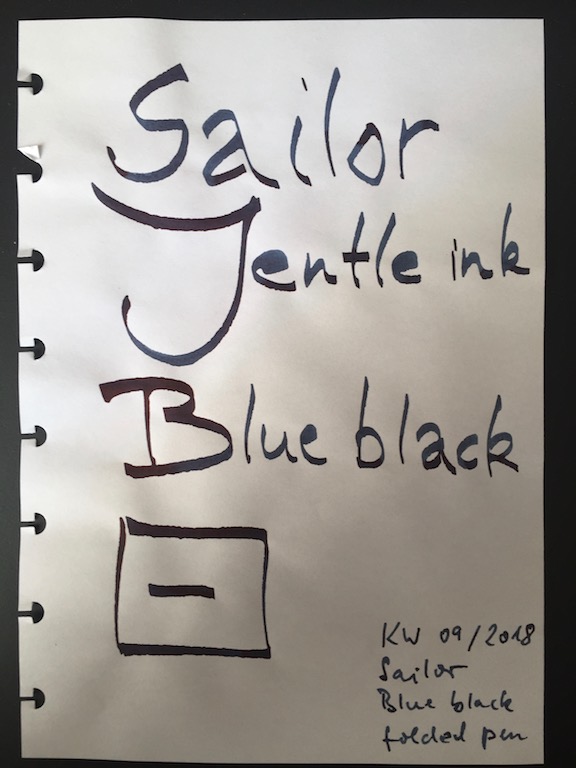 Sailor
Jentle ink
Blue black
KW 09/2018
Sailor
Blue black
folded pen